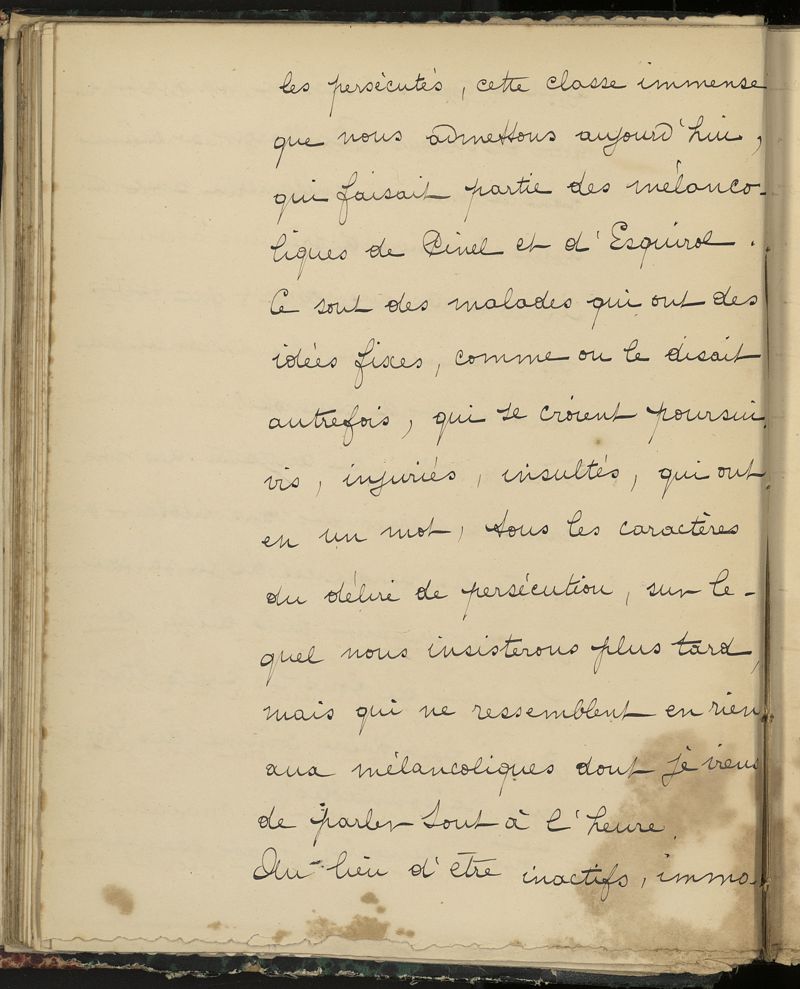 les persécutés, cette classe immense
que nous admettons aujourd'hui,
qui faisait partie des mélanco-
liques de Pinel et d'Esquirol.
Ce sont des malades qui ont des
idées fixes, comme on le disait
autrefois, qui se croient poursui
vis, injuriés, insultés, qui ont
en un mot, tous les caractères
du délire de persécution, sur le-
quel nous insisterons plus tard,
mais qui ne ressemblent en rien
aux mélancoliques dont je viens
de parler tout à l'heure.
Au lieu d'être inactifs, immo-